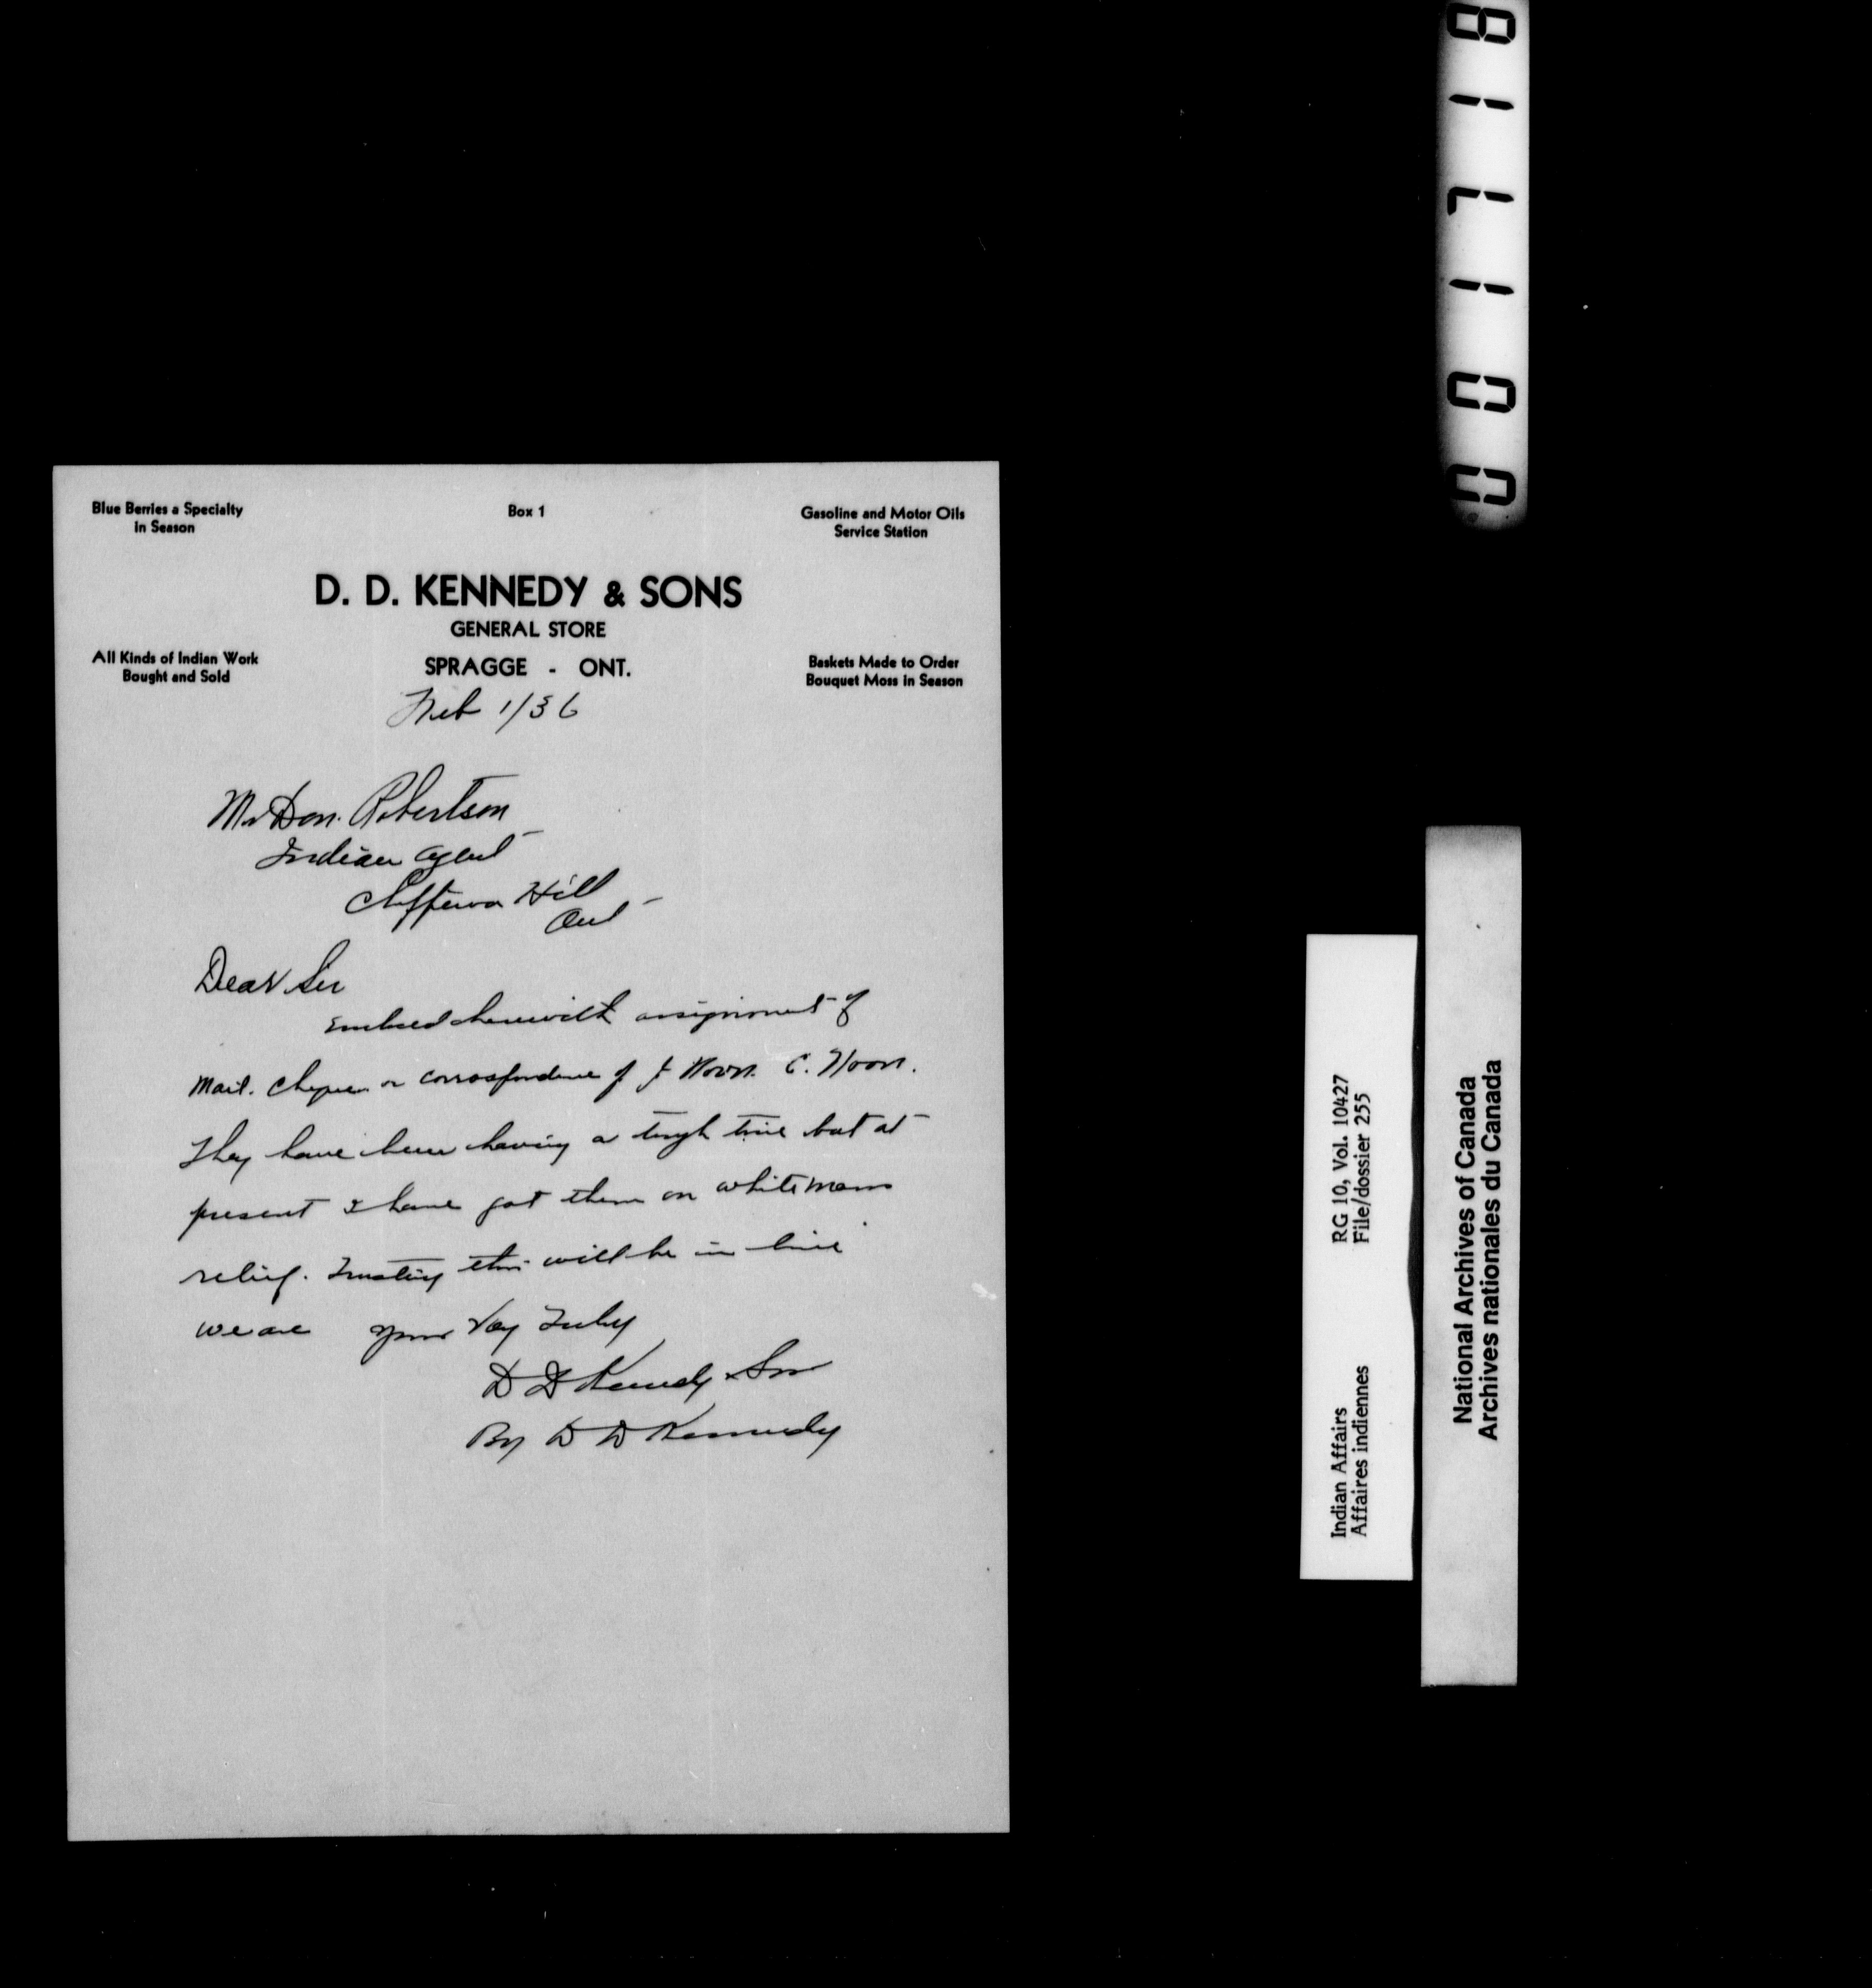 Blue Berries a Specialty
in Season
Box 1
Gasoline and Motor Oils
Service Station
D. D. KENNEDY & SONS
GENERAL STORE
All Kinds of Indian Work
Bought and Sold
SPRAGGE - ONT.
Baskets Made to Order
Bouquet Moss in Season
Feb 1/36
Mr Don. Robertson
Indian Agent
Chippewa Hill
Ont
Dear Sir
Enclosed herewith assignment of
Mail. Cheques or correspondence of J Noon. C. Noon.
They have been having a tough time but at
present I have got them on whitemans
relief. Trusting this will be in line
we are yours Very Truly
D D Kennedy & Sons
By D D Kennedy
001718
Indian Affairs RG 10, Vol. 10427
Affaires indiennes File/dossier 255
National Archives of Canada
Archives nationales du Canada